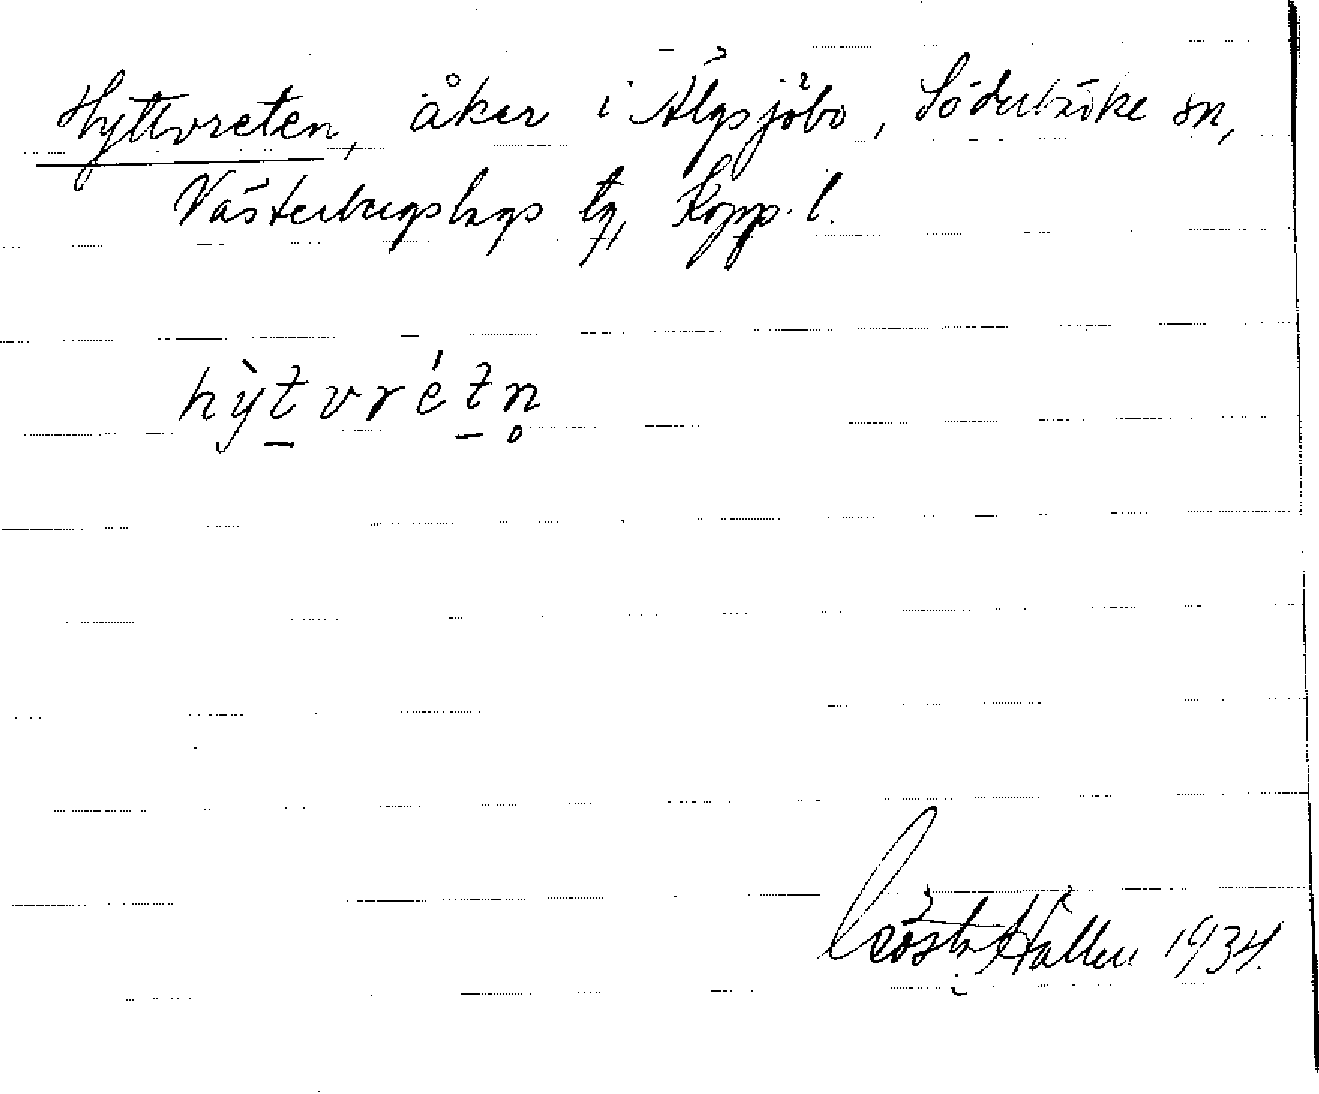 Hyttvreten, åker i Älgsjöbo, Söderbärke sn,
Västerbergslags tg, Kopp. l.
hỳt̲vrét̲n̥
Gösta Hallen 1934.